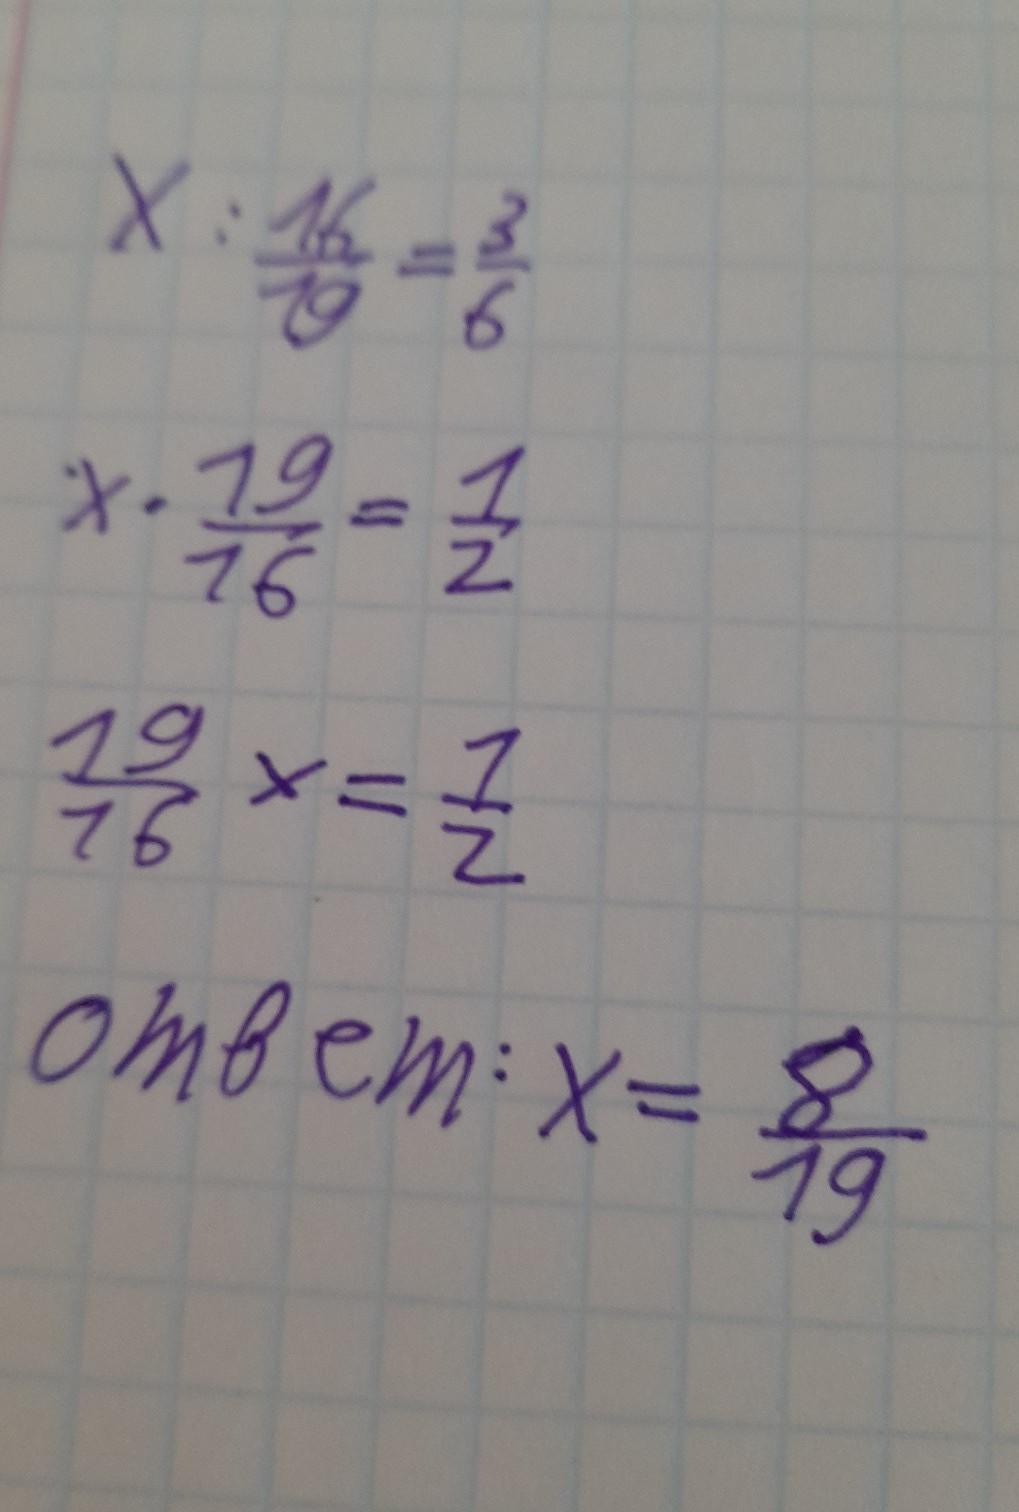 X : 16/19 = 3/6
x · 19/16 = 1/2
19/16 x = 1/2
ответ: x = 8/19